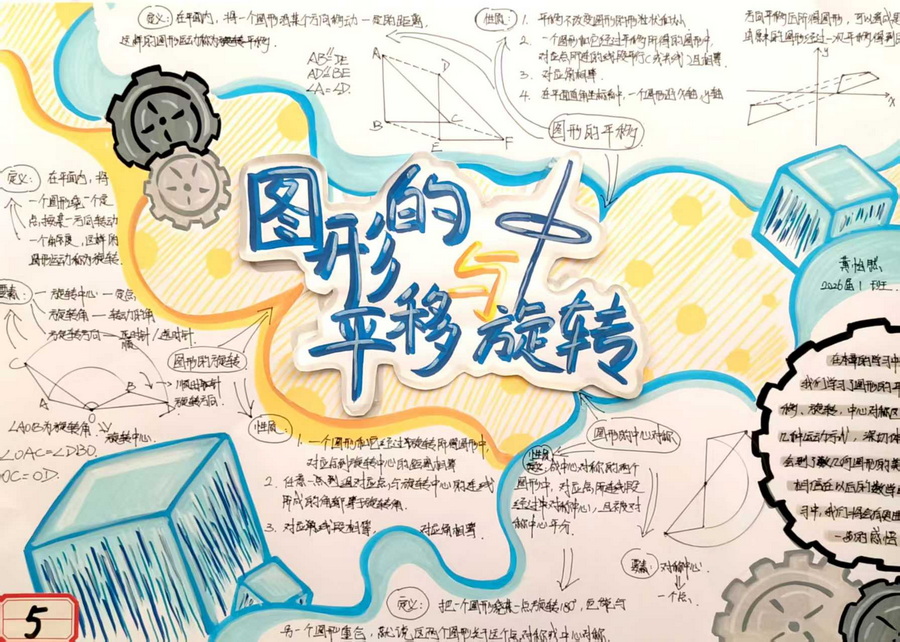 定义：在平面内，将一个图形沿某个方向移动一定的距离，
这样的图形运动称为平移.
AB∥DE
AD∥BE
∠A=∠D.
A
D
B
C
E
F
性质：
1. 平移不改变图形的形状和大小.
2. 一个图形和它经过平移所得的图形中，
对应点所连的线段平行(或共线)且相等.
3. 对应角相等.
4. 在平面直角坐标系中，一个图形
图形的平移
y
x
图形的
平移与旋转
中
定义：在平面内，将
一个图形绕一个定
点按某一方向转动
一个角度，这样的
图形运动称为旋转.
要素：
旋转中心 — 定点
旋转角 — 转动的角
旋转方向 — 顺时针/逆时针
图形的旋转
C
D
B
A
O
顺时针
旋转方向.
∠AOB为旋转角.
旋转中心.
∠OAC=∠DBO.
OC=OD.
性质：
1. 一个图形和它经过旋转所得图形中，
对应点到旋转中心的距离相等
2. 任意一点到对应点与旋转中心的连线
所成的角都等于旋转角.
3. 对应线段相等. 对应角相等.
图形的中心对称
性质：
成中心对称的两个
图形中，对应点所连线段
经过对称中心，且被对
称中心平分.
要素：对称中心.
一个点.
定义：把一个图形绕某一点旋转180°，它能与
另一个图形重合，就说这两个图形关于这个点对称或中心对称.
2026届1班.
在本章的学习中
我们学习了图形的平
移，旋转，中心对称
几种运动方式，深切体
会到了数几何图形的美
相信在以后的数学
习中，我们将会有更
一步的感悟
5